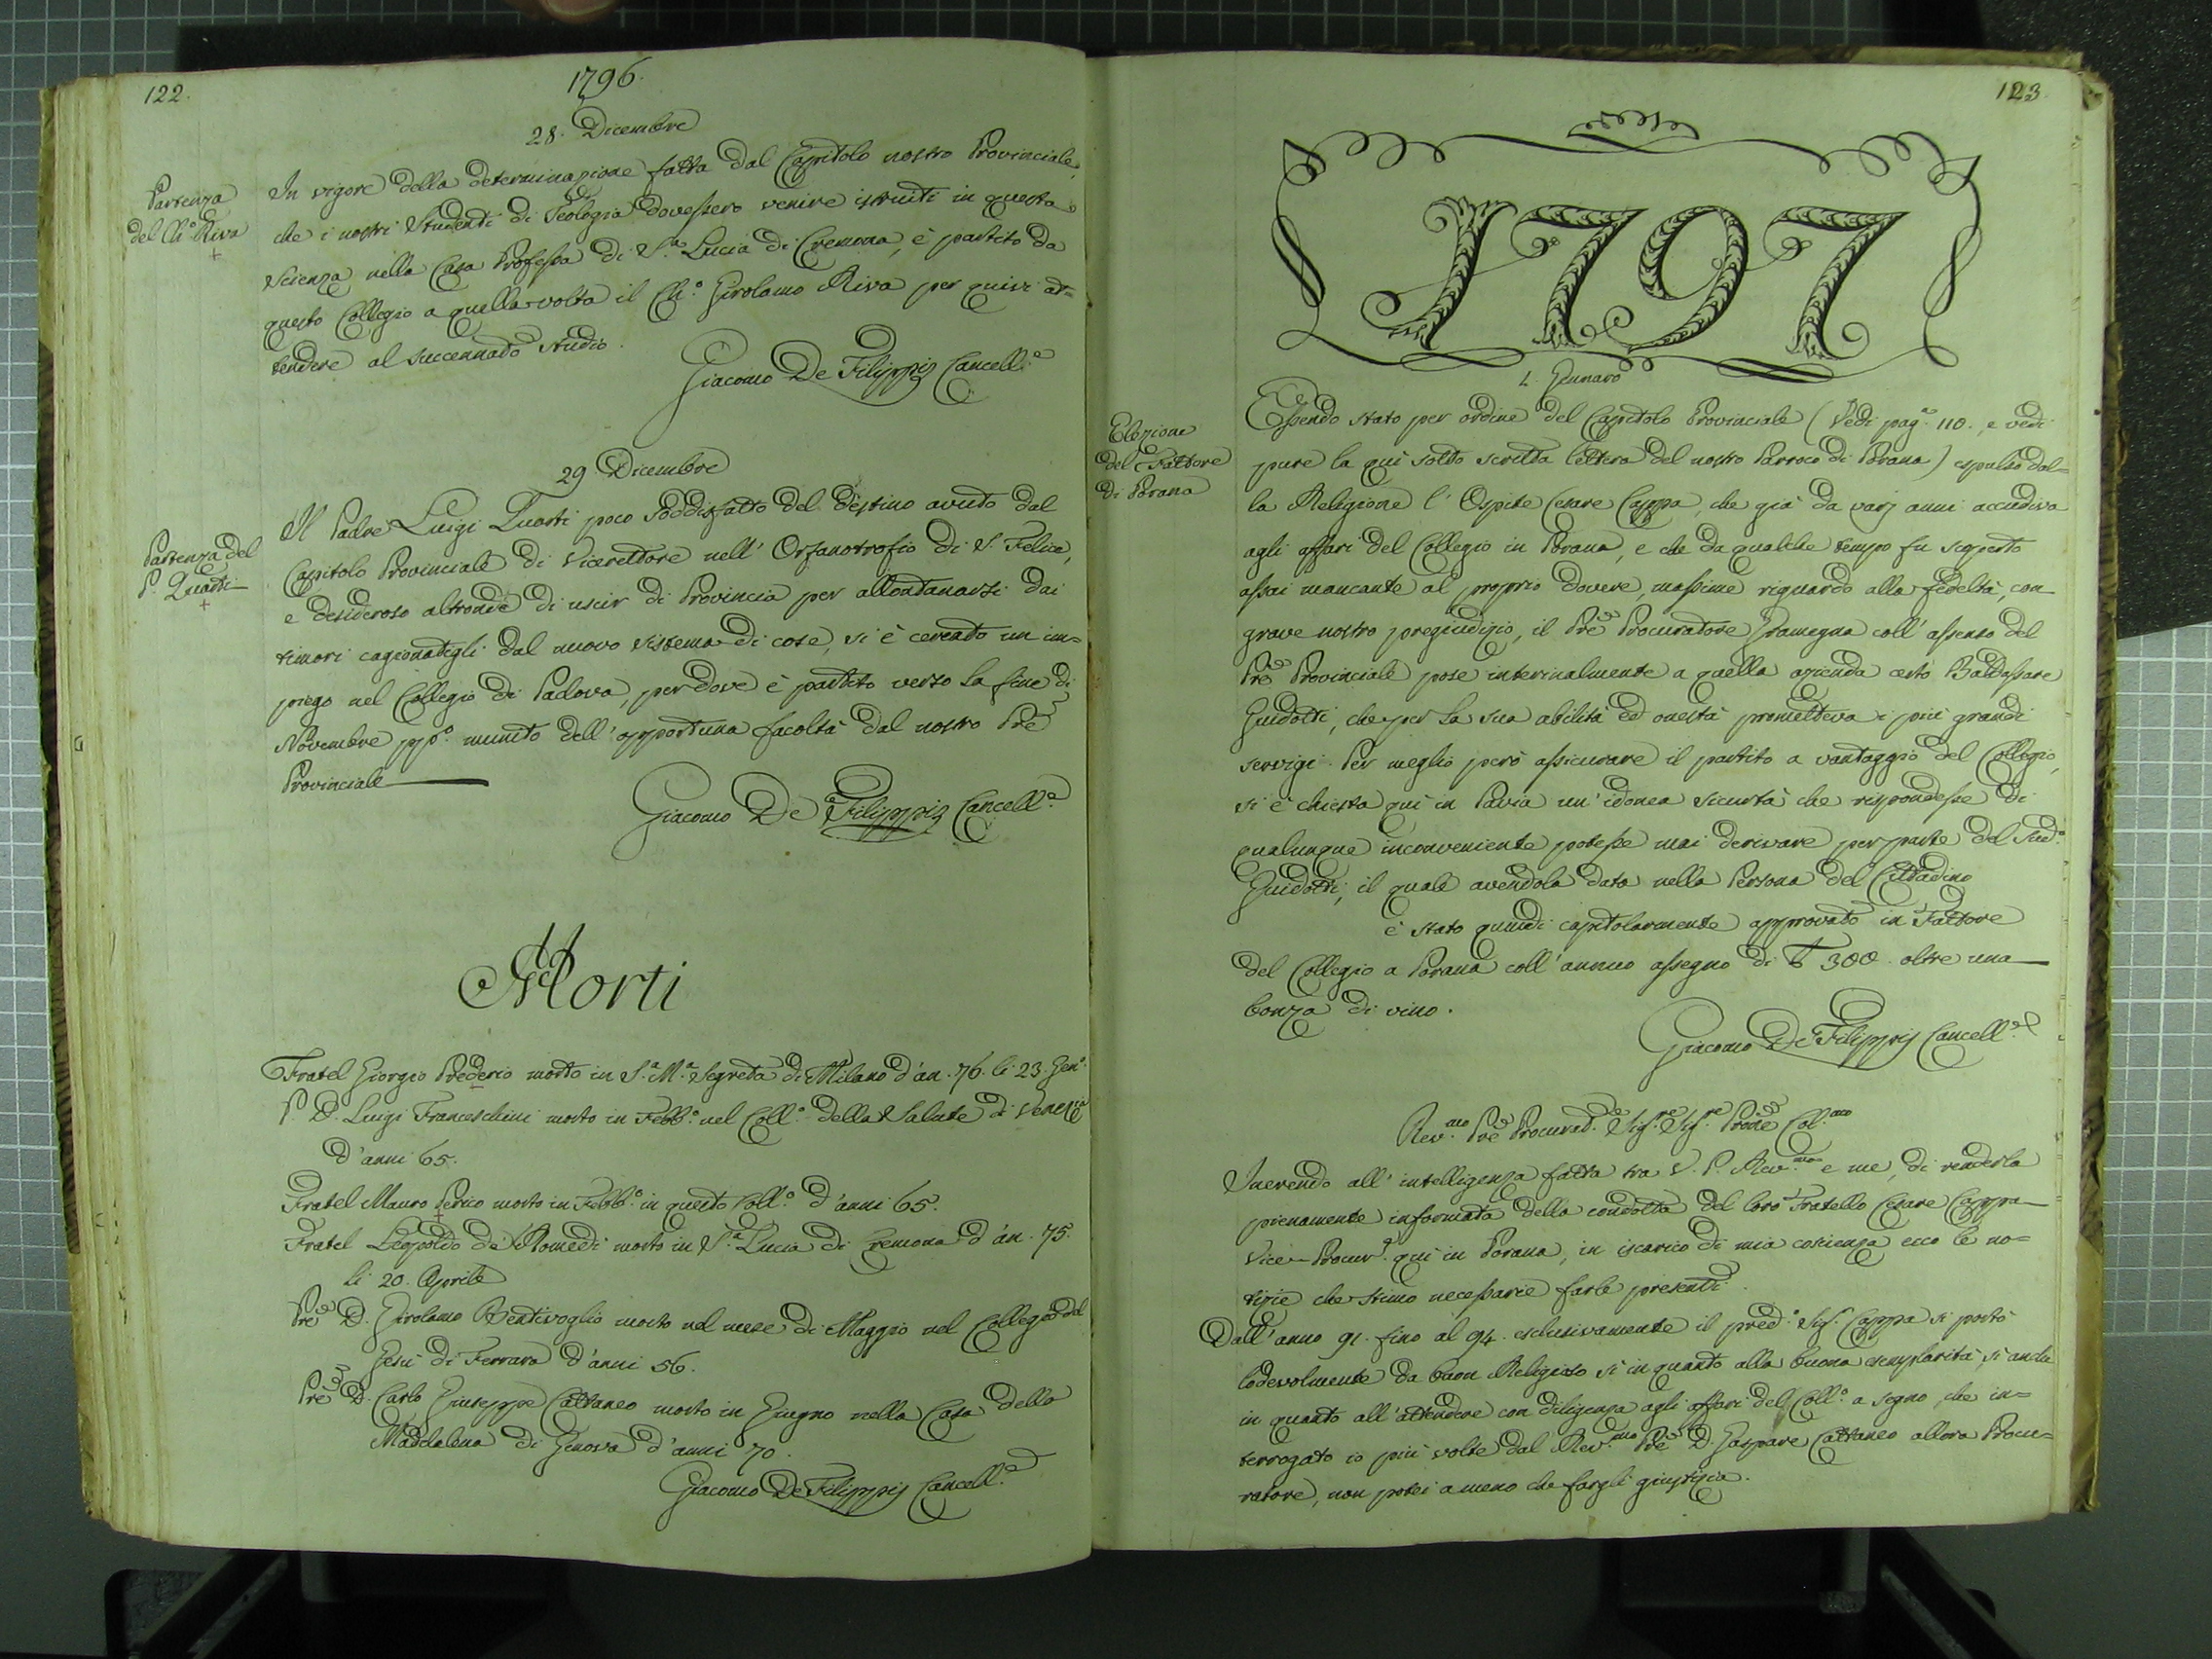 122.
1796.
28. Dicembre
Partenza
del Ch.º Riva
In vigore della determinazione fatta dal Capitolo nostro Provinciale,
che i nostri Studenti di Teologia dovessero venire istruiti in questa
scienza nella Casa Professa di S.ª Lucia di Cremona, è partito da
questo Collegio a quella volta il Ch.º Girolamo Riva per quivi at=
tendere al succennado studio.
Giacomo De Filippis Cancell.e
29 Dicembre
Partenza del
P. Quarti
Il Padre Luigi Quarti poco soddisfatto del destino avuto dal
Capitolo Provinciale di Vicerettore nell' Orfanotrofio di S. Felice,
e desideroso altronde di uscir di Provincia per allontanarsi dai
timori cagionatigli dal nuovo sistema di cose, si è cercato un im=
piego nel Collegio di Padova, per dove è partito verso la fine di
Novembre pp.º munito dell' opportuna facoltà dal nostro Pre
Provinciale
Giacomo De Filippis Cancell.e
Morti
Fratel Giorgio Prederio morto in S.ª M.ª Segreta di Milano d'an. 76. li 23. Gen.º
P. D. Luigi Franceschini morto in Febb.º nel Coll.º della Salute di Venezia
d'anni 65.
Fratel Mauro Perico morto in Febb.º in questo Coll.º d'anni 65.
Fratel Leopoldo de' Romedi morto in S.ª Lucia di Cremona d'an. 75.
li 20. Aprile
Pre D. Girolamo Bentivoglio morto nel mese di Maggio nel Collegio del
Gesù di Ferrara d'anni 56.
Pre D. Carlo Giuseppe Cattaneo morto in Giugno nella Casa della
Maddalena di Genova d'anni 70.
Giacomo De Filippis Cancell.e
123
1797
1. Gennaro
Elezione
del Fattore
di Porana
Essendo stato per ordine del Capitolo Provinciale (Vedi pag.ª 110. e vedi
pure la quì sotto scritta lettera del nostro Parroco di Porana) espulso dal=
la Religione l' Ospite Cesare Cappa, che già da varj anni accudiva
agli affari del Collegio in Porana, e che da qualche tempo fu scoperto
assai mancante al proprio dovere, massime riguardo alla fedeltà, con
grave nostro pregiudizio, il Pre Procuratore Gramegna coll' assenso del
Pre Provinciale pose interinalmente a quella azienda certo Baldassare
Guidotti, che per la sua abilità ed onestà prometteva i più grandi
servigi. Per meglio però assicurare il partito a vantaggio del Collegio,
si è chiesta quì in Pavia un' idonea sicurtà che rispondesse di
qualunque inconveniente potesse mai derivare per parte del Sud.º
Guidotti, il quale avendola data nella Persona del Cittadino
è stato quindi capitolarmente approvato in Fattore
del Collegio a Porana coll' annuo assegno di 300. oltre una
bonza di vino.
Giacomo De Filippis Cancell.e
Rev.mo Pre Procurad.e Sig.re Sig.re Prone Col.mo
Inerendo all' intelligenza fatta tra V. P. Rev.ma e me, di renderla
pienamente informata della condotta del loro Fratello Cesare Cappa
Vice-Procur.e quì in Porana, in iscarico di mia coscienza ecco le no=
tizie che stimo necessarie farle presenti.
Dall' anno 91. fino al 94. esclusivamente il pred.º Sig. Cappa si portò
lodevolmente da buon Religioso sì in quanto alla buona esemplarità, sì anche
in quanto all' attendere con diligenza agli affari del Coll.º a segno, che in=
terrogato io più volte dal Rev.mo Pre D. Gaspare Cattaneo allora Procu=
ratore, non potei a meno che fargli giustizia.